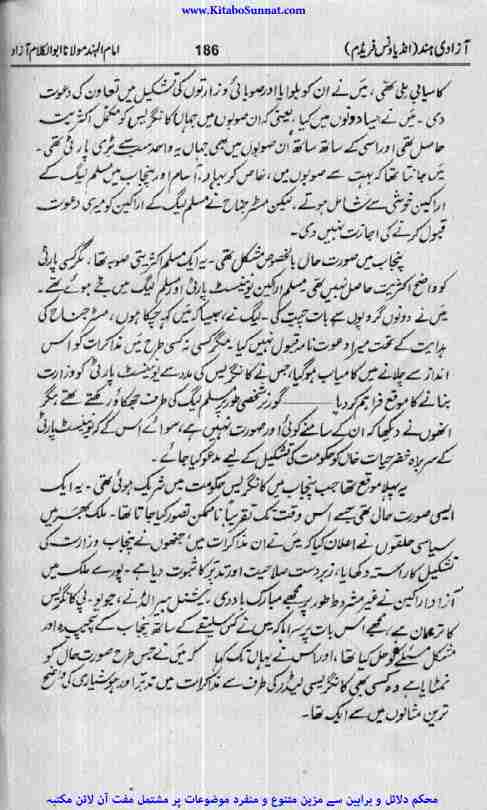 www.KitaboSunnat.com
آزادی ہند (انڈیا ونس فریڈم) 186 امام الہند مولانا ابوالکلام آزاد
کامیابی ملی تھی، میں نے ان کو بلوایا اور صوبائی وزارتوں کی تشکیل میں تعاون کی دعوت
دی۔ میں نے ایسا دونوں میں کیا، یعنی کہ ان صوبوں میں جہاں کانگریس کو مکمل اکثریت
حاصل تھی اور اسی کے ساتھ ساتھ ان صوبوں میں بھی جہاں یہ واحد سب سے بڑی پارٹی تھی۔
میں جانتا تھا کہ بہت سے صوبوں میں، خاص کر بہار، آسام اور پنجاب میں مسلم لیگ کے
اراکین خوشی سے شامل ہوتے، لیکن مسٹر جناح نے مسلم لیگ کے اراکین کو میری دعوت
قبول کرنے کی اجازت نہیں دی۔
پنجاب میں صورت حال بالخصوص مشکل تھی۔ یہ ایک مسلم اکثریتی صوبہ تھا، مگر کسی پارٹی
کو واضح اکثریت حاصل نہیں تھی مسلم اراکین یونینسٹ پارٹی اور مسلم لیگ میں بٹے ہوئے تھے۔
میں نے دونوں گروپوں سے بات چیت کی۔ لیگ نے، جیسا کہ میں کہہ چکا ہوں، مسٹر جناح کی
ہدایت کے تحت میرا دعوت نامہ قبول نہیں کیا، مگر کسی نہ کسی طرح میں مذاکرات کو اس
انداز سے چلانے میں کامیاب ہو گیا، جس نے کانگریس کی مدد سے یونینسٹ پارٹی کو وزارت
بنانے کا موقع فراہم کر دیا ـــــــ گورنر شخصی طور پر مسلم لیگ کی طرف جھکاؤ رکھتے تھے مگر
انھوں نے دیکھا کہ ان کے سامنے کوئی اور صورت نہیں ہے، سوائے اس کے کہ یونینسٹ پارٹی
کے سربراہ خضر حیات خاں کو حکومت کی تشکیل کے لیے مدعو کیا جائے۔
یہ پہلا موقع تھا جب پنجاب میں کانگریس حکومت میں شریک ہوئی تھی۔ یہ ایک
ایسی صورت حال تھی جسے اس وقت تک تقریباً ناممکن تصور کیا جاتا تھا۔ ملک بھر میں
سیاسی حلقوں نے اعلان کیا کہ میں نے ان مذاکرات میں جنھوں نے پنجاب وزارت کی
تشکیل کا راستہ دکھایا، زبردست صلاحیت اور تدبر کا ثبوت دیا ہے۔ پورے ملک میں
آزاد اراکین نے غیر مشروط طور پر مجھے مبارک باد دی۔ نیشنل ہیرالڈ نے، جو یو۔پی کانگریس
کا ترجمان ہے، مجھے اس بات پر سراہا کہ میں نے کس سلیقے کے ساتھ پنجاب کے پیچیدہ اور
مشکل مسئلے کو حل کیا تھا، اور اس نے یہاں تک کہا کہ میں نے جس طرح صورت حال کو
نمٹایا ہے وہ کسی بھی کانگریسی لیڈر کی طرف سے مذاکرات میں تدبر اور ہوشیاری کی واضح
ترین مثالوں میں سے ایک تھا۔
محکم دلائل و براہین سے مزین متنوع و منفرد موضوعات پر مشتمل مفت آن لائن مکتبہ